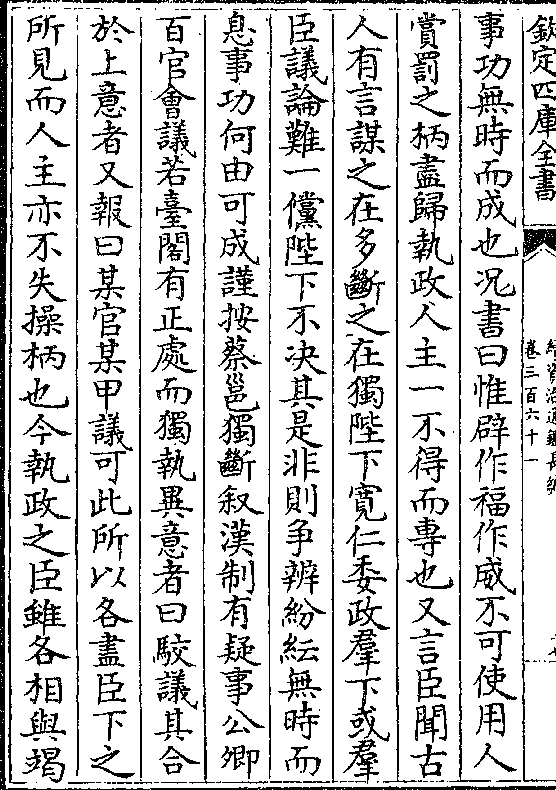 欽定四庫全書
續資治通鑑長編
卷三百六十一
事功無時而成也况書曰惟辟作福作威不可使用人
賞罰之柄盡歸執政人主一不得而專也又言臣聞古
人有言謀之在多斷之在獨陛下寛仁委政羣下或羣
臣議論難一儻陛下不决其是非則争辨紛紜無時而
息事功何由可成謹按蔡邕獨斷叙漢制有疑事公卿
百官會議若臺閣有正處而獨執異意者曰駁議其合
於上意者又報曰某官某甲議可此所以各盡臣下之
所見而人主亦不失操柄也今執政之臣雖各相與竭